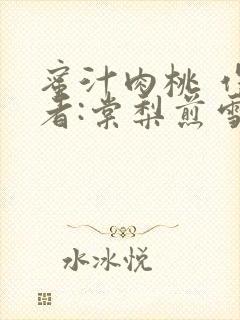 蜜汁肉桃
者:棠梨煎雪
水冰悦